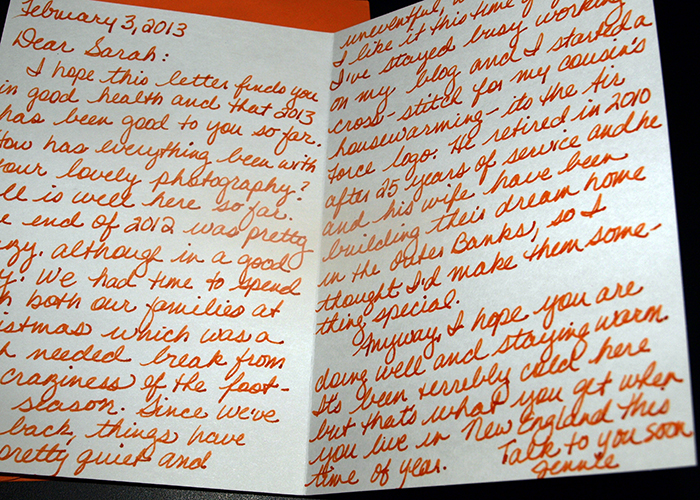 February 3, 2013
Dear Sarah:
I hope this letter finds you
in good health and that 2013
has been good to you so far.
How has everything been with
your lovely photography?
ll is well here so far.
e end of 2012 was pretty
zy. although in a good
y. We had time to spend
h both our families at
istmas which was a
h needed break from
craziness of the foot-
season. Since we've
back, things have
pretty quiet and
uneventful,
I like it this time of y
I've stayed busy working
on my blog and I started a
cross-stitch for my cousin's
housewarming - its the Air
Force logo. He retired in 2010
after 25 years of service and he
and his wife have been
building their dream home
in the Outer Banks, so I
thought I'd make them some-
thing special.
Anyway, I hope you are
doing well and staying warm.
It's been terribly cold here
but that's what you get when
you live in New England this
time of year.
Talk to you soon
Jennie